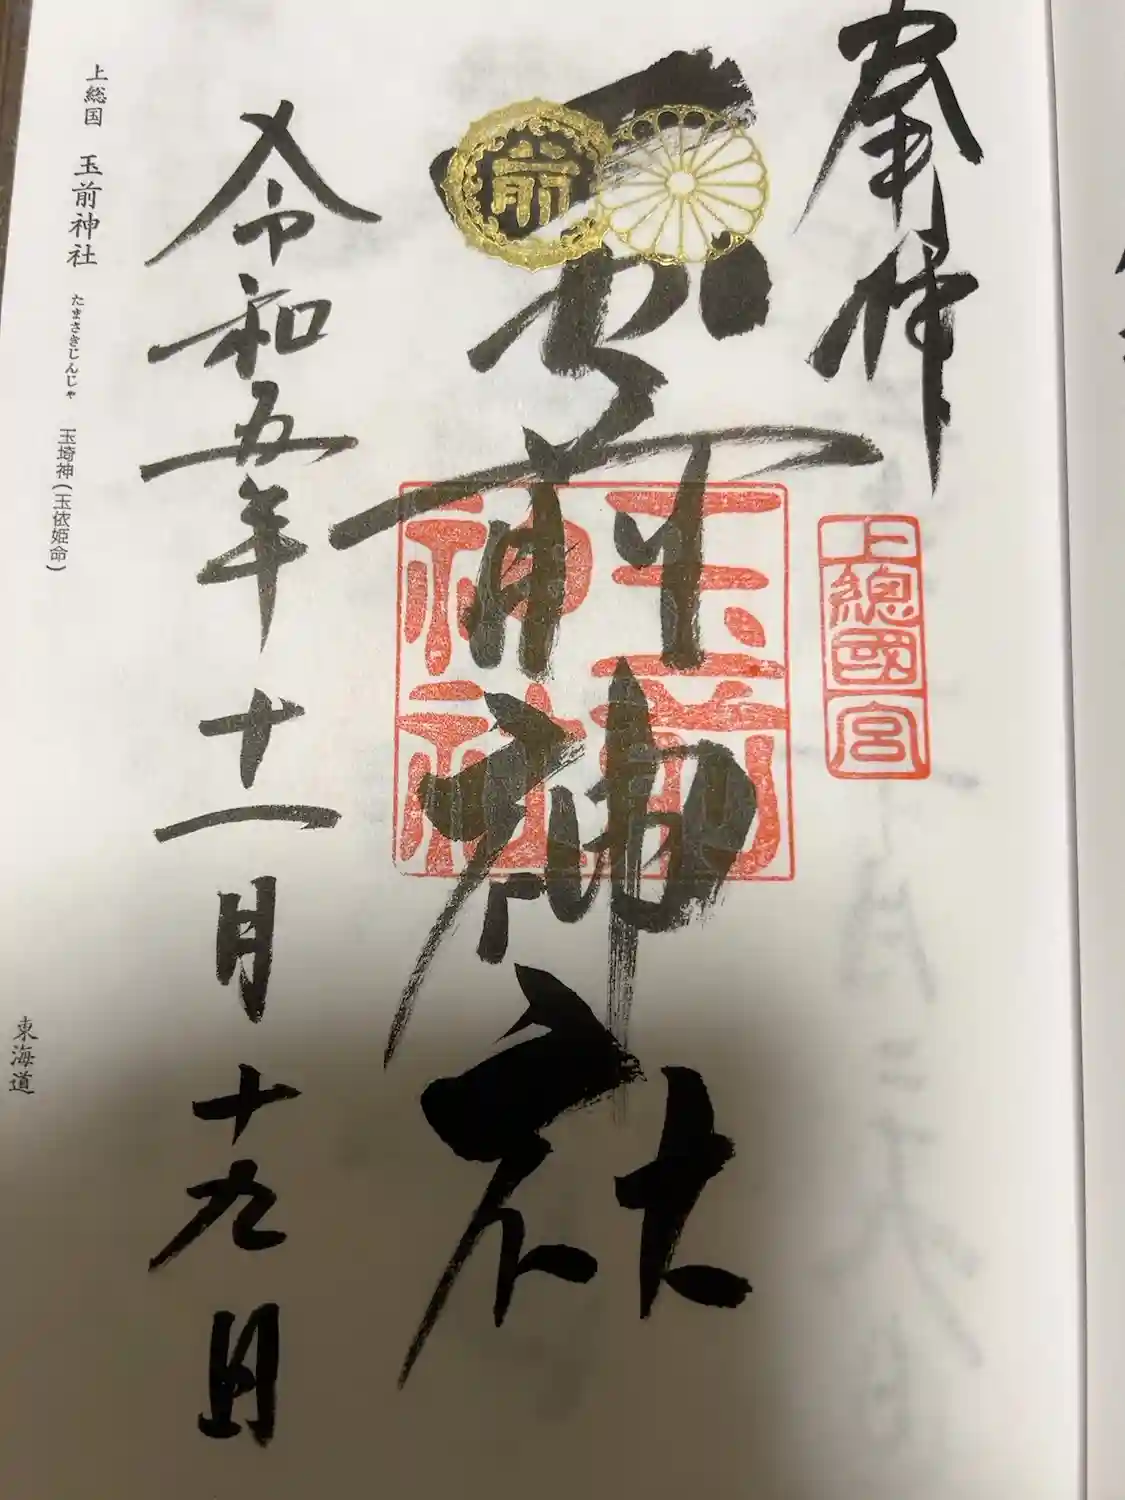 奉拝
上總國一宮
前
玉前神社
玉前神社
令和五年十一月十九日
上総国 玉前神社 たまさきじんじゃ 玉埼神(玉依姫命)
東海道